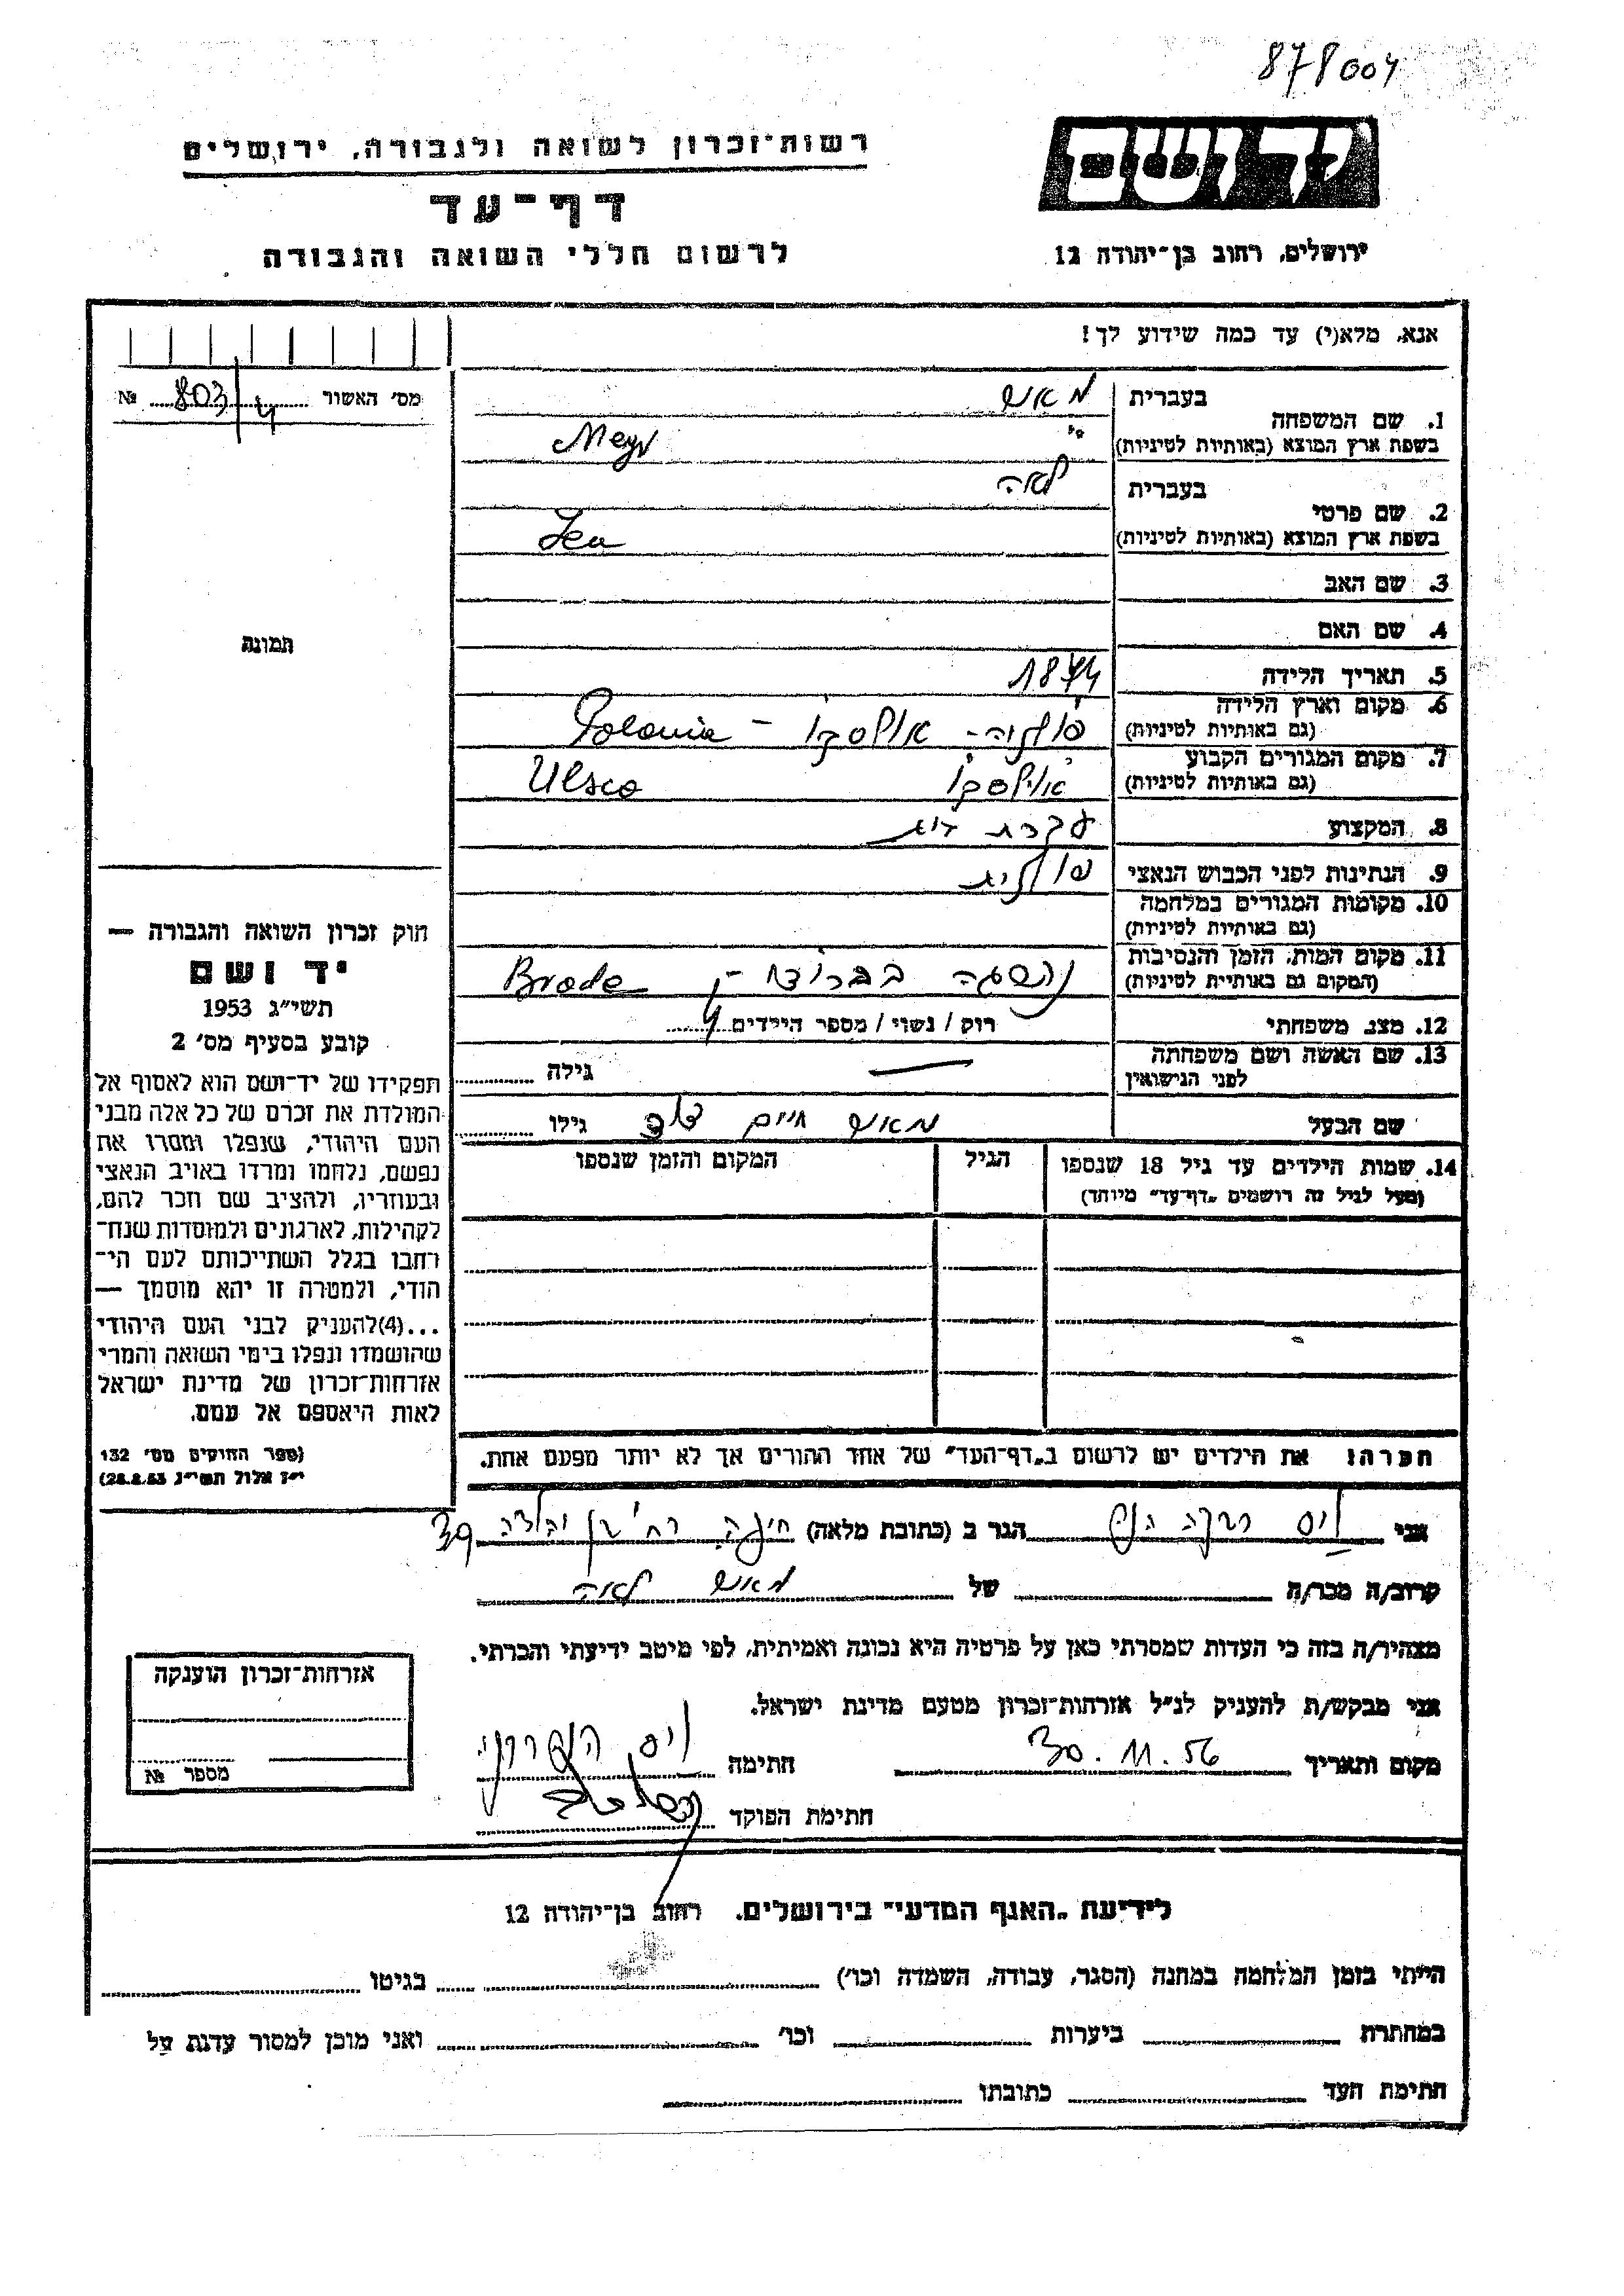 878004
יד ושם
רשות־זכרון לשואה ולגבורה, ירושלים
דף־עד
לרשום חללי השואה והגבורה
ירושלים, רחוב בן־יהודה 12
אנא, מלא(י) עד כמה שידוע לך!
מס' האשור 803/4 №
1. שם המשפחה
בעברית מאיש
בשפת ארץ המוצא (באותיות לטיניות)
2. שם פרטי
בעברית לאה
בשפת ארץ המוצא (באותיות לטיניות) Lea
3. שם האב
4. שם האם
5. תאריך הלידה 1874
6. מקום וארץ הלידה (גם באותיות לטיניות) פולניה - Polania
7. מקום המגורים הקבוע (גם באותיות לטיניות) Ulsco
8. המקצוע עקרת בית
9. הנתינות לפני הכבוש הנאצי פולנית
10. מקומות המגורים במלחמה (גם באותיות לטיניות)
11. מקום המות, הזמן והנסיבות (המקום גם באותיות לטיניות) נהרגה Brode
12. מצב משפחתי רוק / נשוי / מספר הילדים 4
13. שם האשה ושם משפחתה לפני הנישואין — גילה
שם הבעל מאיש חיים גילו
14. שמות הילדים עד גיל 18 שנספו
(מעל לגיל זה רושמים „דף־עד" מיוחד)
הגיל
המקום והזמן שנספו
תמונה
חוק זכרון השואה והגבורה —
יד ושם
תשי״ג 1953
קובע בסעיף מס' 2
תפקידו של יד־ושם הוא לאסוף אל
המולדת את זכרם של כל אלה מבני
העם היהודי, שנפלו ומסרו את
נפשם, נלחמו ומרדו באויב הנאצי
ובעוזריו, ולהציב שם וזכר להם,
לקהילות, לארגונים ולמוסדות שנח־
רבו בגלל השתייכותם לעם הי־
הודי, ולמטרה זו יהא מוסמך —
...(4)להעניק לבני העם היהודי
שהושמדו ונפלו בימי השואה והמרי
אזרחות־זכרון של מדינת ישראל
לאות היאספם אל עמם.
(ספר החוקים מס' 132
י״ז אלול תשי״ג 28.8.53)
הערה! את הילדים יש לרשום ב„דף־העד" של אחד ההורים אך לא יותר מפעם אחת.
אני הגר ב (כתובת מלאה) חיפה רח' 39
קרוב/ה מכר/ה של מאיש לאה
מצהיר/ה בזה כי העדות שמסרתי כאן על פרטיה היא נכונה ואמיתית, לפי מיטב ידיעתי והכרתי.
אני מבקש/ת להעניק לנ״ל אזרחות־זכרון מטעם מדינת ישראל.
מקום ותאריך 30.11.56 חתימה
חתימת הפוקד
אזרחות־זכרון הוענקה
מספר №
לידיעת „האגף המדעי" בירושלים, רחוב בן־יהודה 12
הייתי בזמן המלחמה במחנה (הסגר, עבודה, השמדה וכו') בגיטו
במחתרת ביערות וכו' ואני מוכן למסור עדות על
חתימת העד כתובתו